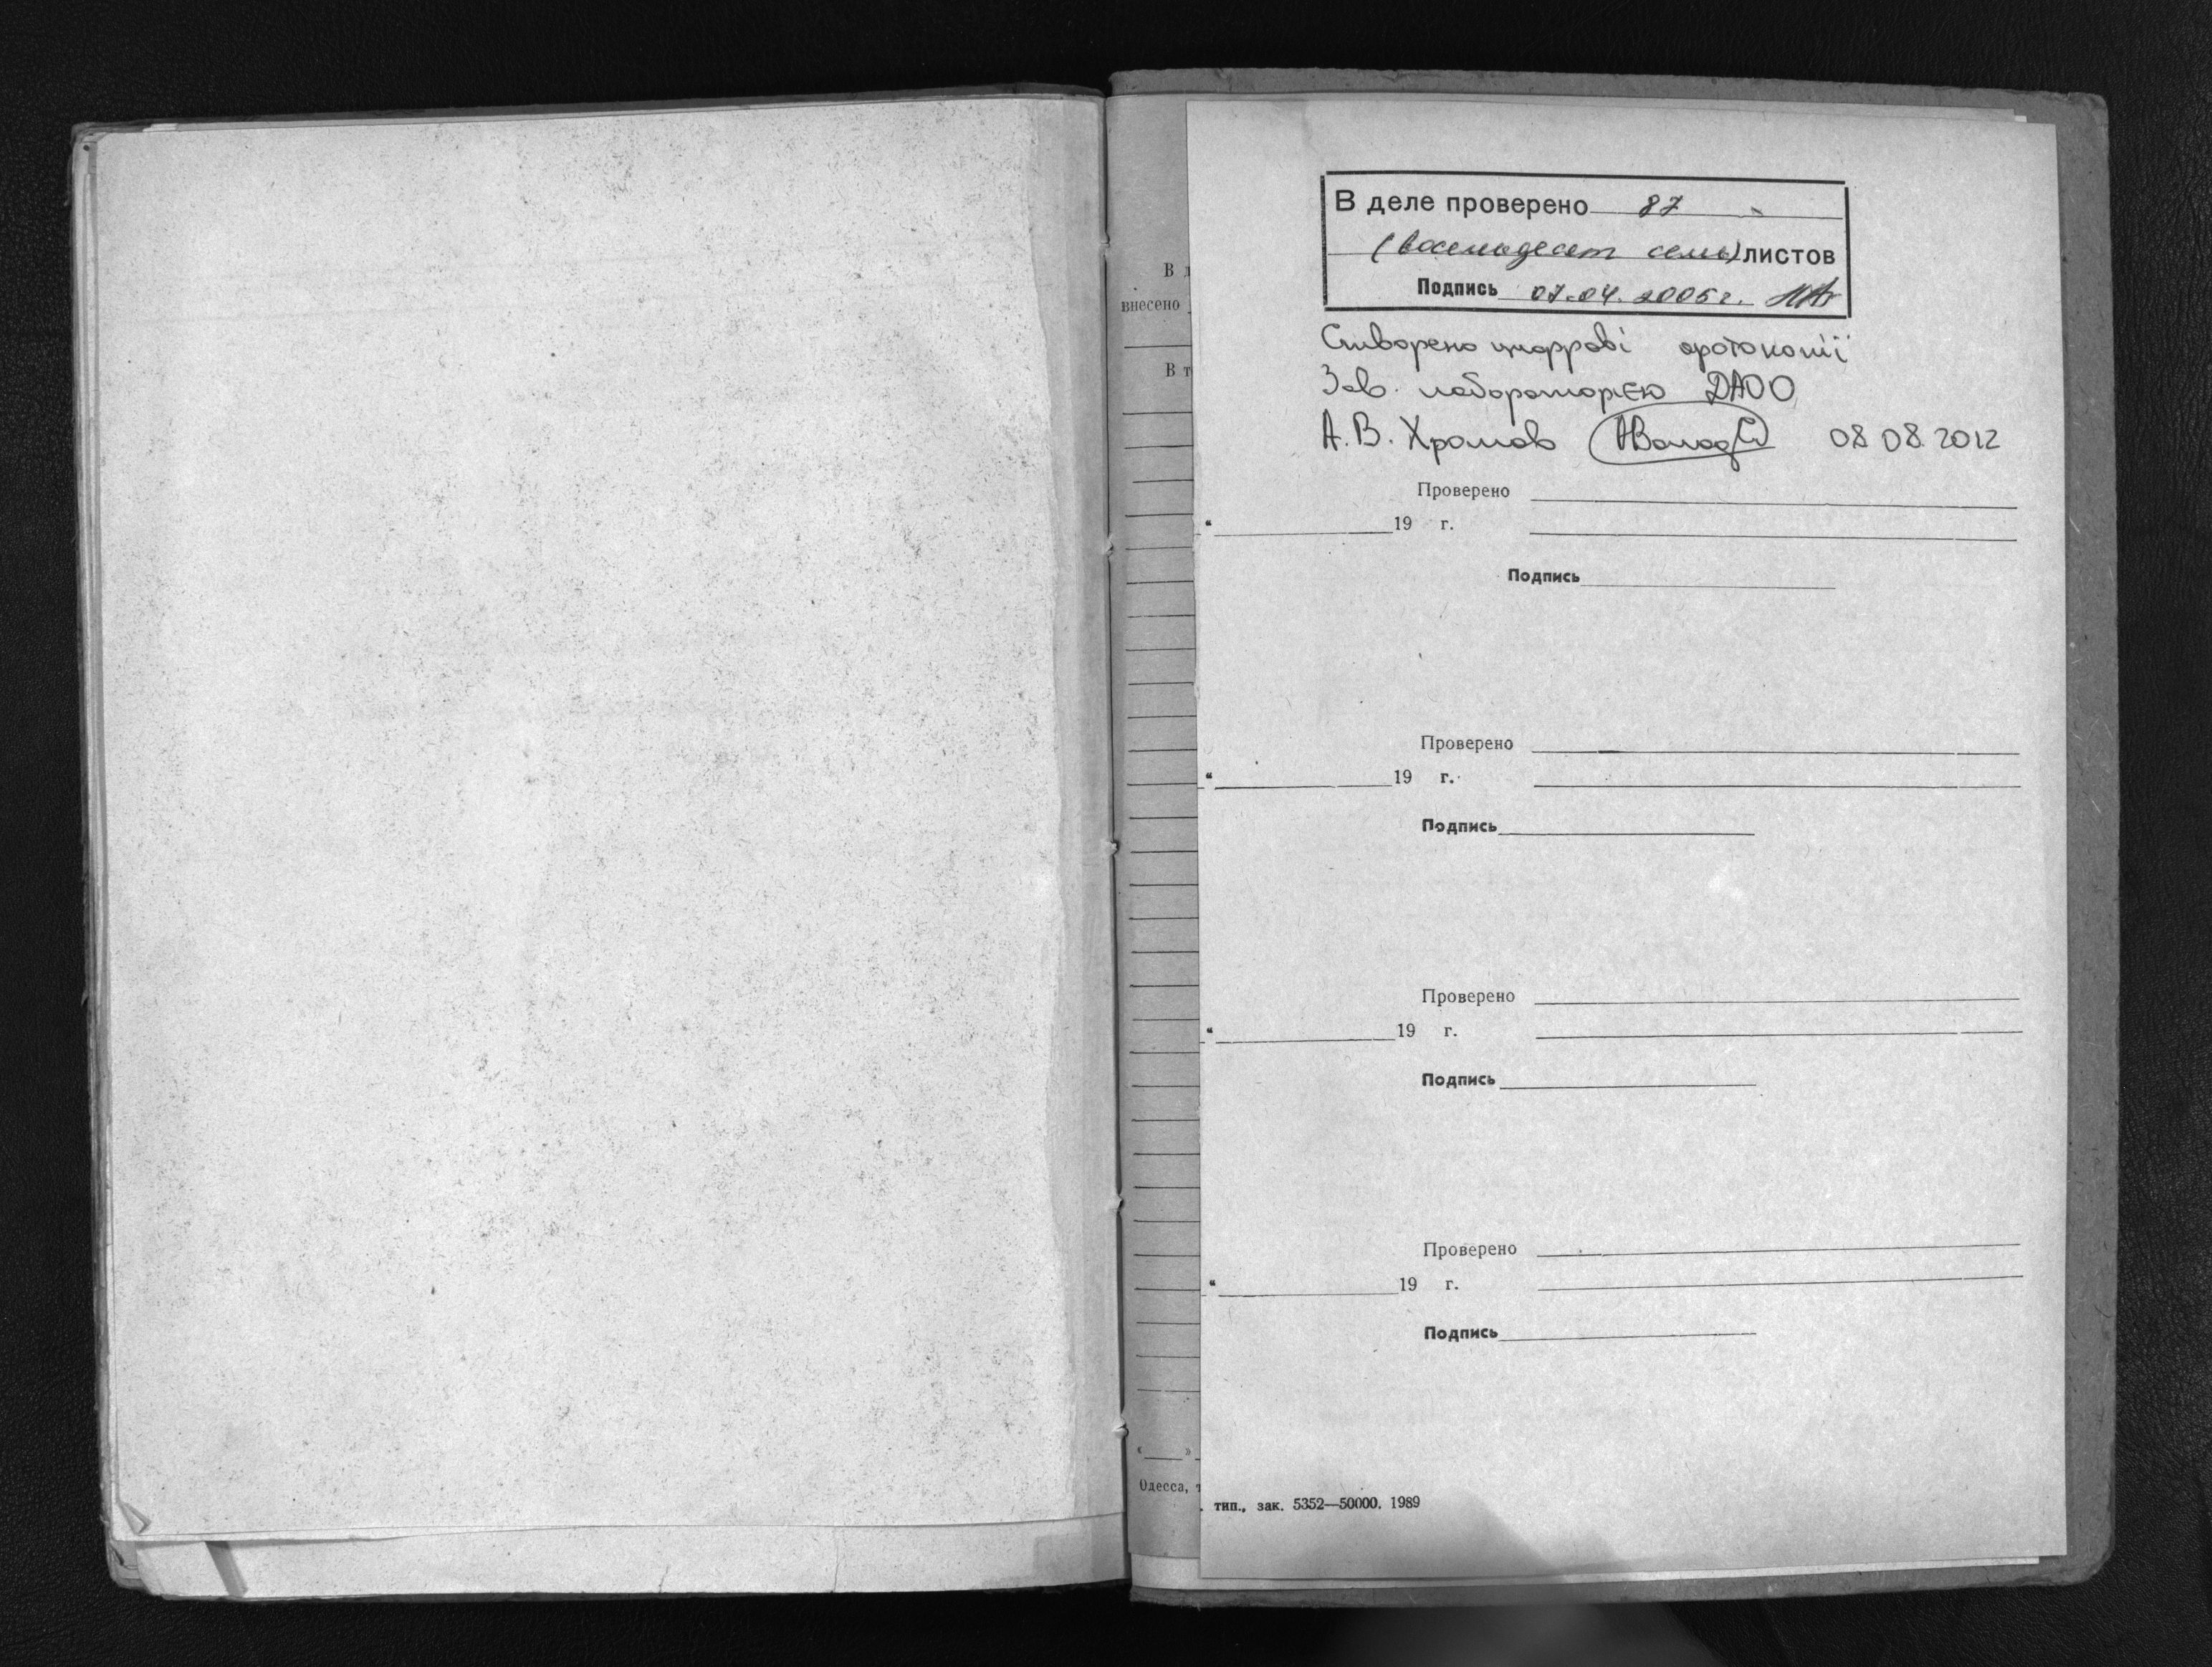 В д
внесено
В т
« »
Одесса, т
В деле проверено 87
(восемьдесят семь) листов
Подпись 07.04.2005г.
Створено цифрові фотокопії
Зав. лабораторією ДАОО
А.В. Хромов 08.08.2012
Проверено
“ 19 г.
Подпись
Проверено
“ 19 г.
Подпись
Проверено
“ 19 г.
Подпись
Проверено
“ 19 г.
Подпись
. тип., зак. 5352—50000. 1989